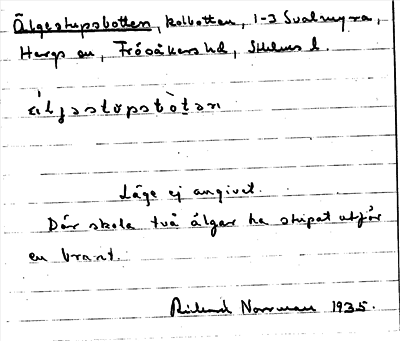 Älgestupsbotten, kolbotten, 1-3 Svalmyra,
Hargs sn, Frösåkers hd, Sthlms l.
ä̀lʝastɷpsbòtan
Läge ej angivet.
Där skola två älgar ha stupat utför
en brant.
Rickard Norrman 1935.